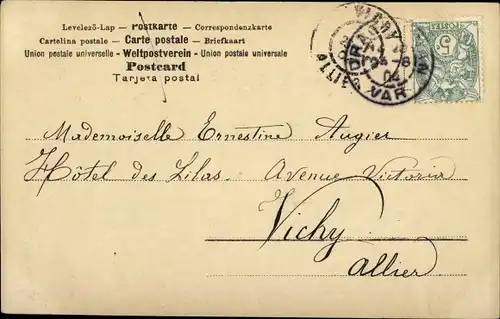 Levelező-Lap — Postkarte — Correspondenzkarte
Cartolina postale — Carte postale — Briefkaart
Union postale universelle — Weltpostverein — Unione postale universale
Postcard
Tarjeta postal
VICHY
ALLIER
DRAG
VAR
04
5
Mademoiselle Ernestine Augier
Hôtel des Lilas. Avenue Victoria
Vichy
Allier